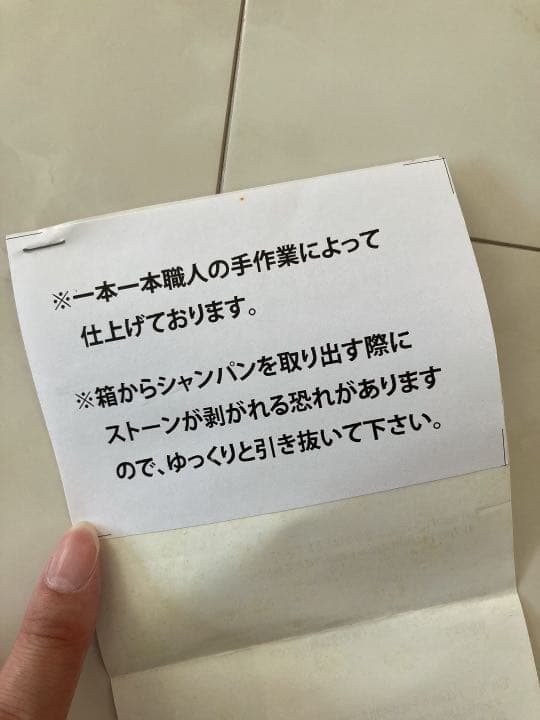 ※一本一本職人の手作業によって
仕上げております。
※箱からシャンパンを取り出す際に
ストーンが剥がれる恐れがあります
ので、ゆっくりと引き抜いて下さい。